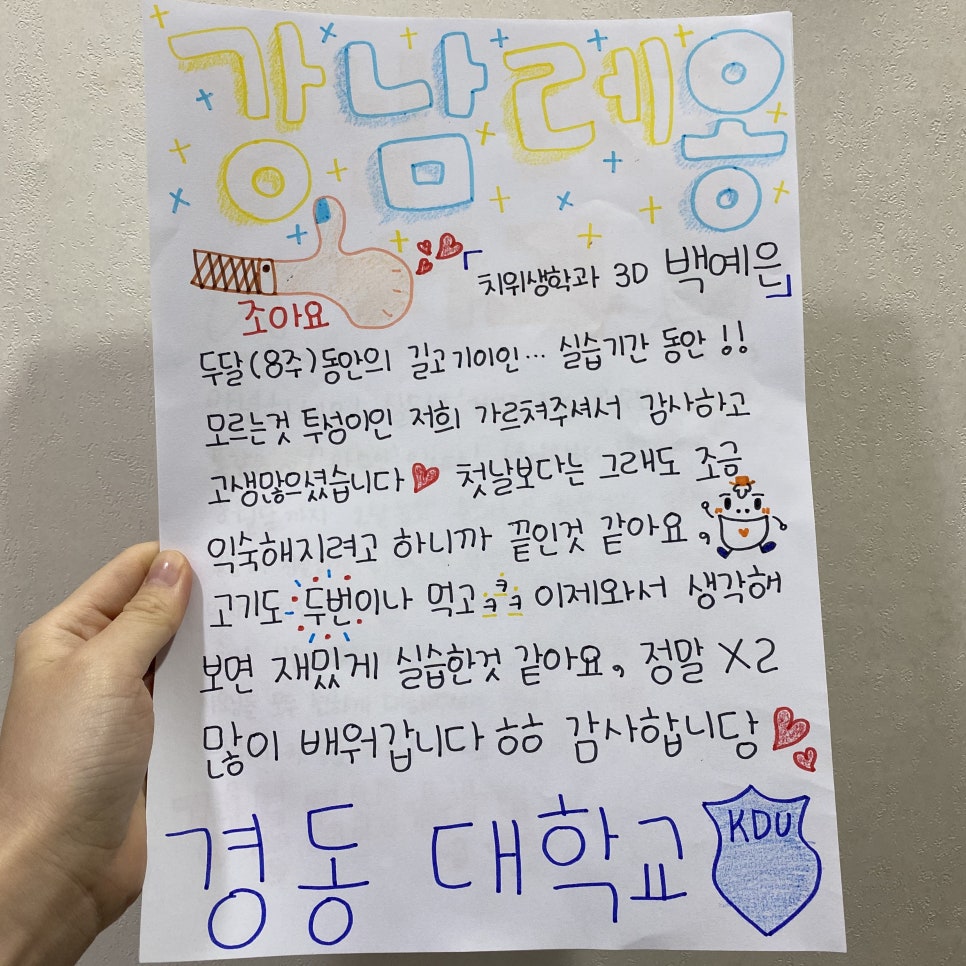 강남레옹
조아요
「치위생학과 3D 백예은」
두달(8주)동안의 길고기이인… 실습기간 동안 !!
모르는것 투성이인 저희 가르쳐주셔서 감사하고
고생많으셨습니다♥ 첫날보다는 그래도 조금
익숙해지려고 하니까 끝인것 같아요,
고기도 두번이나 먹고ㅋㅋㅋ 이제와서 생각해
보면 재밌게 실습한것 같아요, 정말 X2
많이 배워갑니다 ㅎㅎ 감사합니당♥♥
경동 대학교
KDU